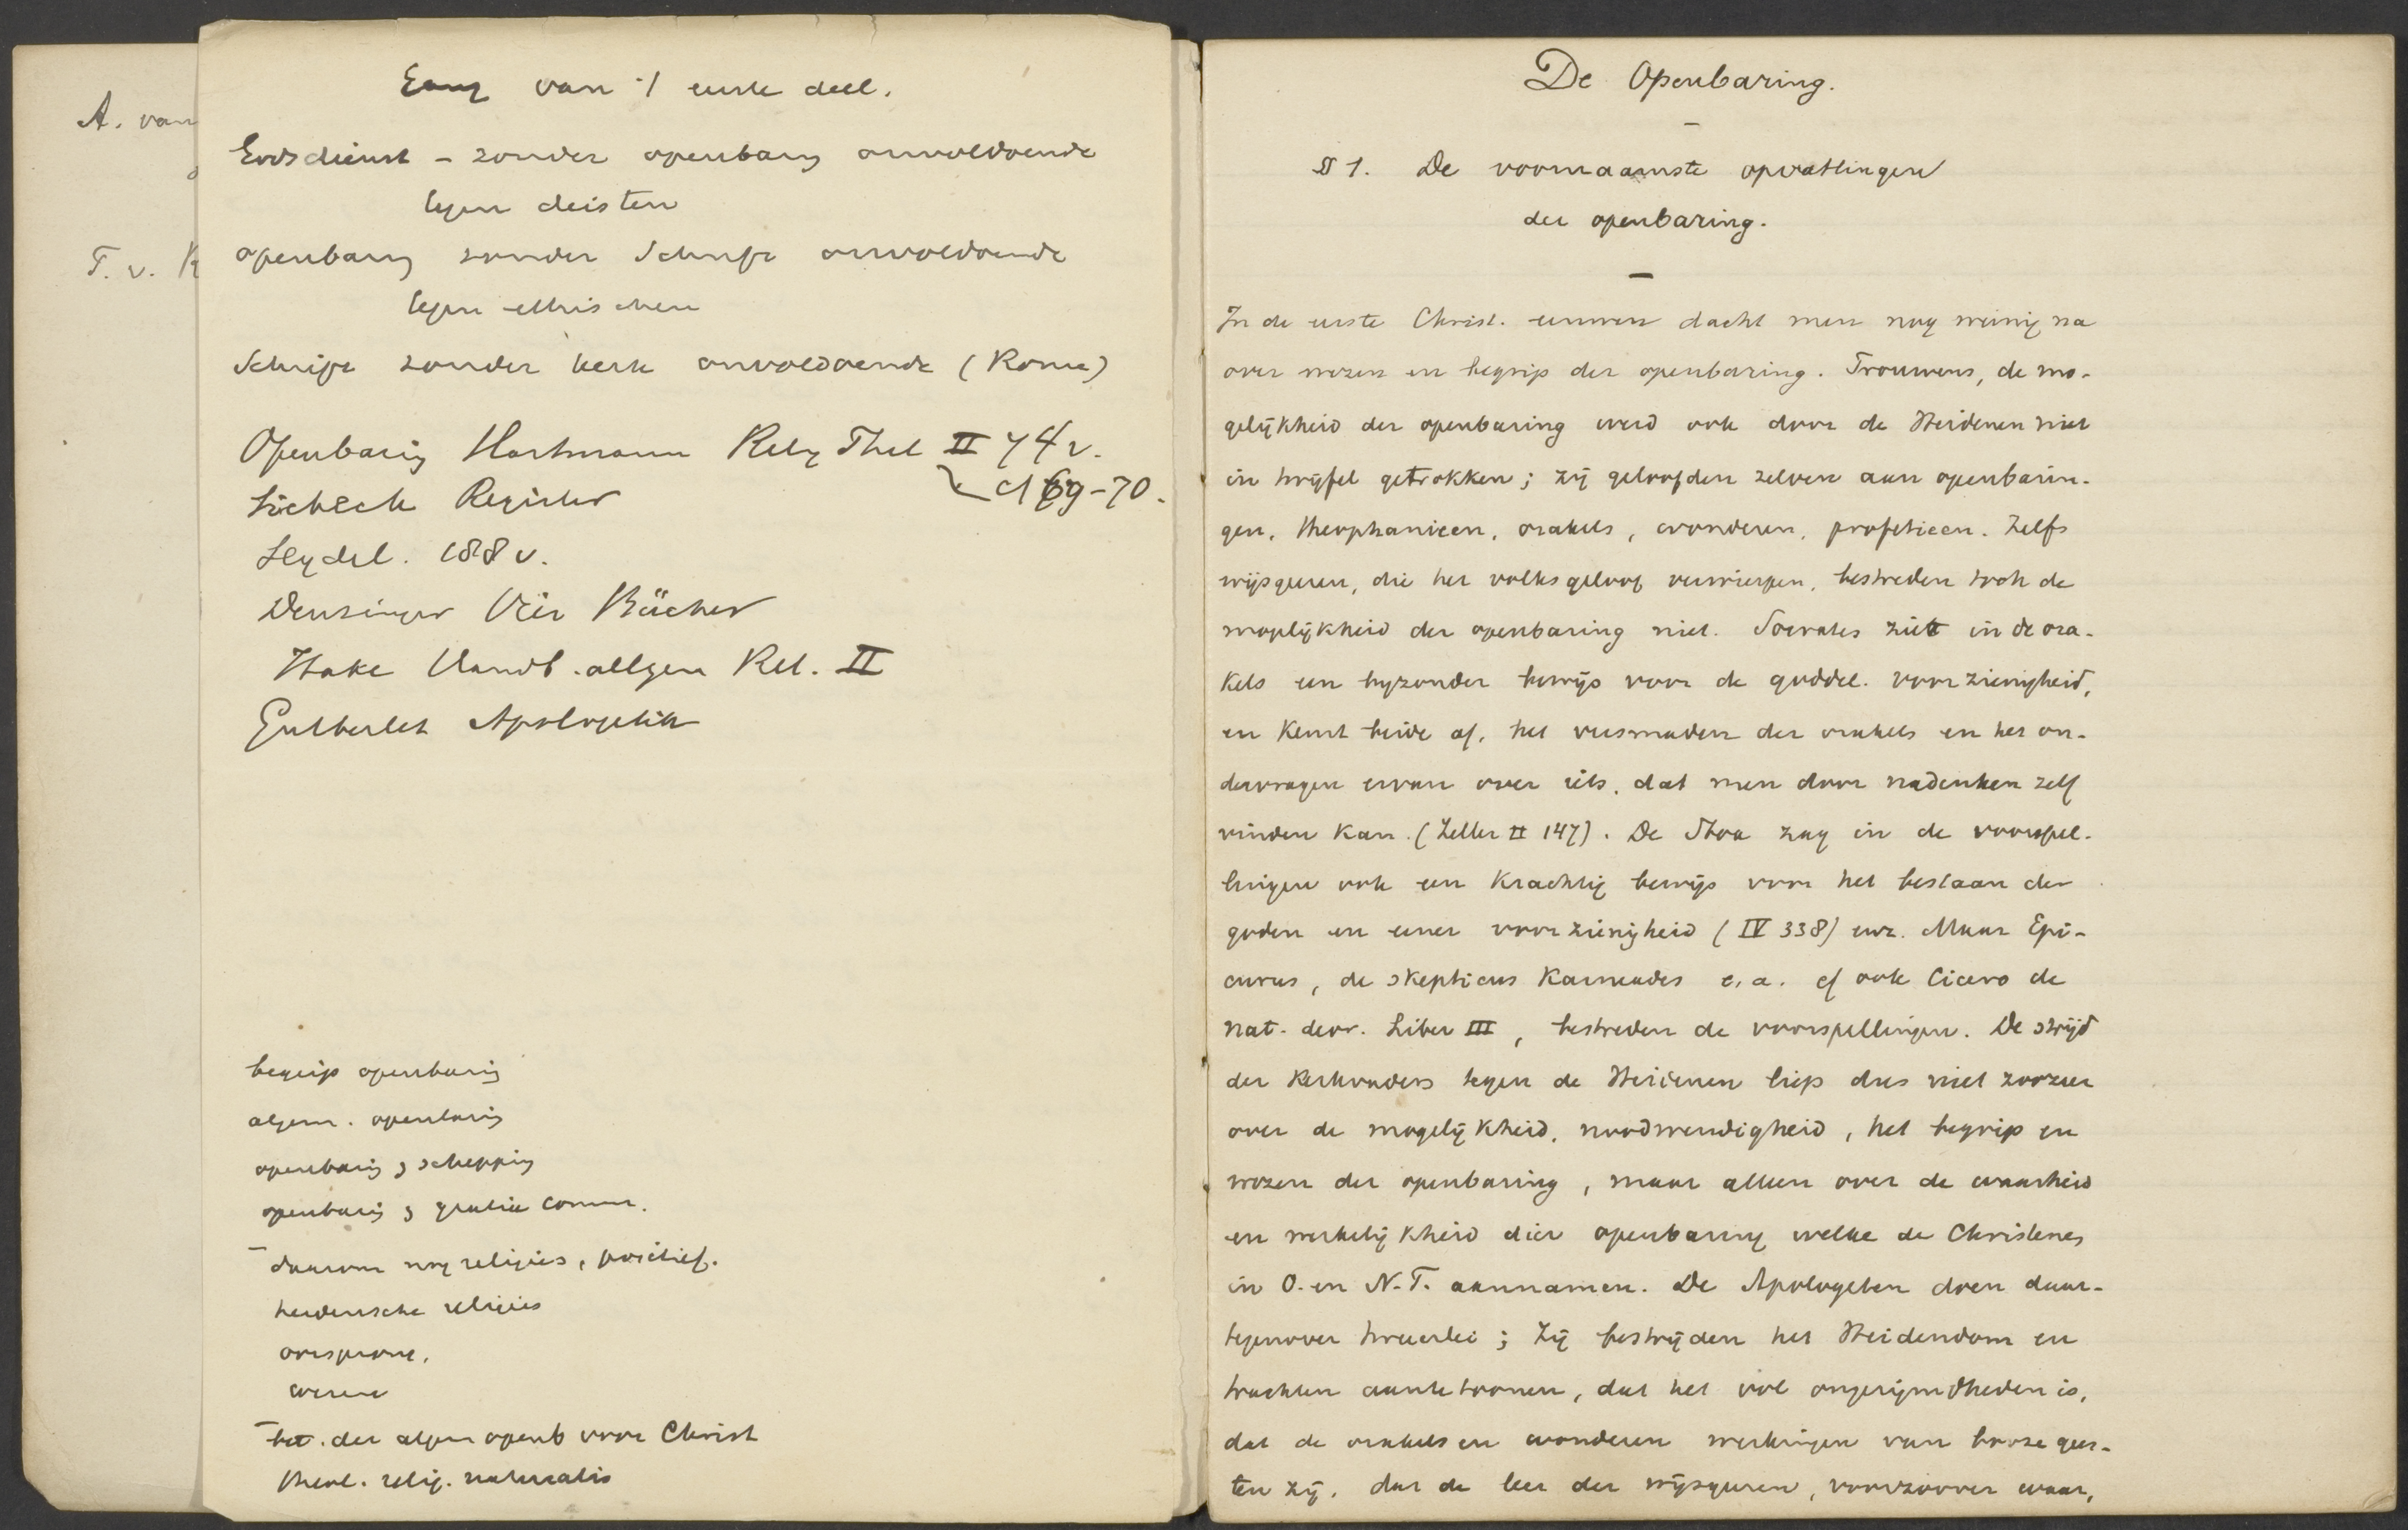 A. van
T. v. K
Gang van 't eerste deel.
Godsdienst - zonder openbarg onvoldoende
tegen deisten
openbarg zonder Schrift onvoldoende
tegen ethischen
Schrift zonder kerk onvoldoende (Rome)
Openbarig Hartmann Relig Phil II 74 v.
cf 69-70.
Register
Seydel. 188 v.
Denzinger Vier Bücher
Hake Handb. allgem Rel. II
Gutberlet Apologetik
begrip openbarig
algem. openbarig
openbarig & scheppig
openbarig & gratia comm.
daarom nog religies, positief.
heidensche religies
oorsprong,
wezen
bet. der algem openb voor Christ
theol. relig. naturalis
De Openbaring.
§ 1. De voornaamste opvattingen
der openbaring.
In de eerste Christ. eeuwen dacht men nog weinig na
over wezen en begrip der openbaring. Trouwens, de mo-
gelijkheid der openbaring werd ook door de Heidenen niet
in twijfel getrokken; zij geloofden zelven aan openbarin-
gen, theophanieen, orakels, wonderen, profetieen. Zelfs
wijsgeeren, die het volksgeloof verwierpen, bestreden toch de
mogelijkheid der openbaring niet. Socrates ziet in de ora-
kels een byzonder bewijs voor de goddel. voorzienigheid,
en keurt beide af, het versmaden der orakels en het on-
dervragen ervan over iets, dat men door nadenken zelf
vinden kan. (Zeller II 147). De Stoa zag in de voorspel-
lingen ook een krachtig bewijs voor het bestaan der
goden en eener voorzienigheid (IV 338) enz. Maar Epi-
curus, de skepticus Karneades e.a. cf ook Cicero de
nat. deor. Liber III, bestreden de voorspellingen. De strijd
der Kerkvaders tegen de Heidenen liep dus niet zoozeer
over de mogelijkheid, noodwendigheid, het begrip en
wezen der openbaring, maar alleen over de waarheid
en werkelijkheid dier openbaring welke de Christenen
in O. en N.T. aannamen. De Apologeten doen daar-
tegenover tweeerlei; zij bestrijden het Heidendom en
trachten aantetoonen, dat het vol ongerijmdheden is,
dat de orakels en wonderen werkingen van booze gees-
ten zij, dat de leer der wijsgeeren, voorzoover waar,